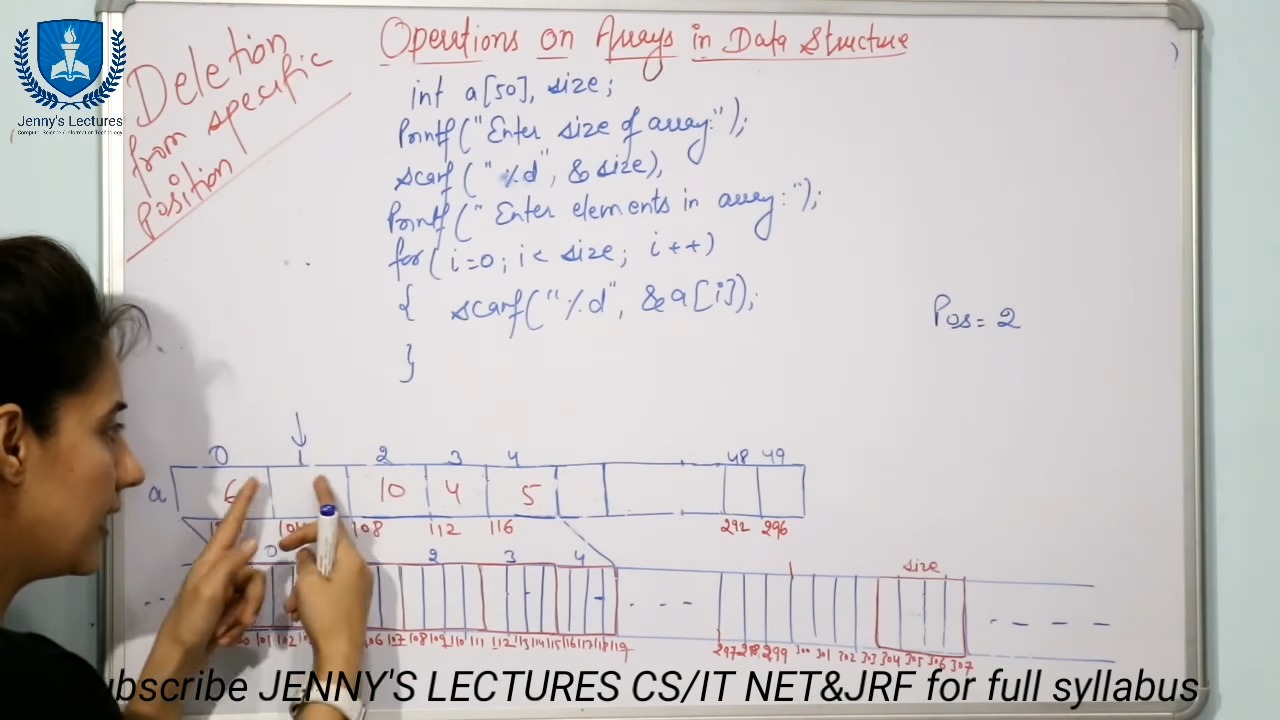 Jenny's Lectures
Computer Science/Information Technology
Deletion
from specific
position
Operations on Arrays in Data Structure
int a[50], size;
Printf("Enter size of array:");
scanf("%d", &size),
Printf("Enter elements in array:");
for( i=0; i< size; i++)
{ scanf("%d", &a[i]);
}
Pos= 2
0 1 2 3 4 48 49
a 6 10 4 5
108 112 116 292 296
0 2 3 4 size
101 102 106 107 108 109 110 111 112 113 114 115 116 117 118 119 297 298 299 300 301 302 303 304 305 306 307
ubscribe JENNY'S LECTURES CS/IT NET&JRF for full syllabus